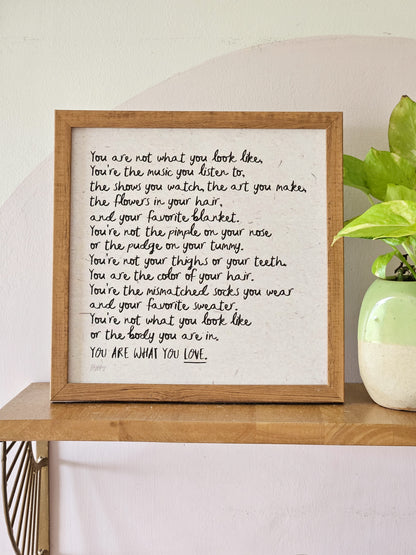 You are not what you look like,
You're the music you listen to,
the shows you watch, the art you make,
the flowers in your hair,
and your favorite blanket.
You're not the pimple on your nose
or the pudge on your tummy.
You're not your thighs or your teeth.
You are the color of your hair.
You're the mismatched socks you wear
and your favorite sweater.
You're not what you look like
or the body you are in.
YOU ARE WHAT YOU LOVE.